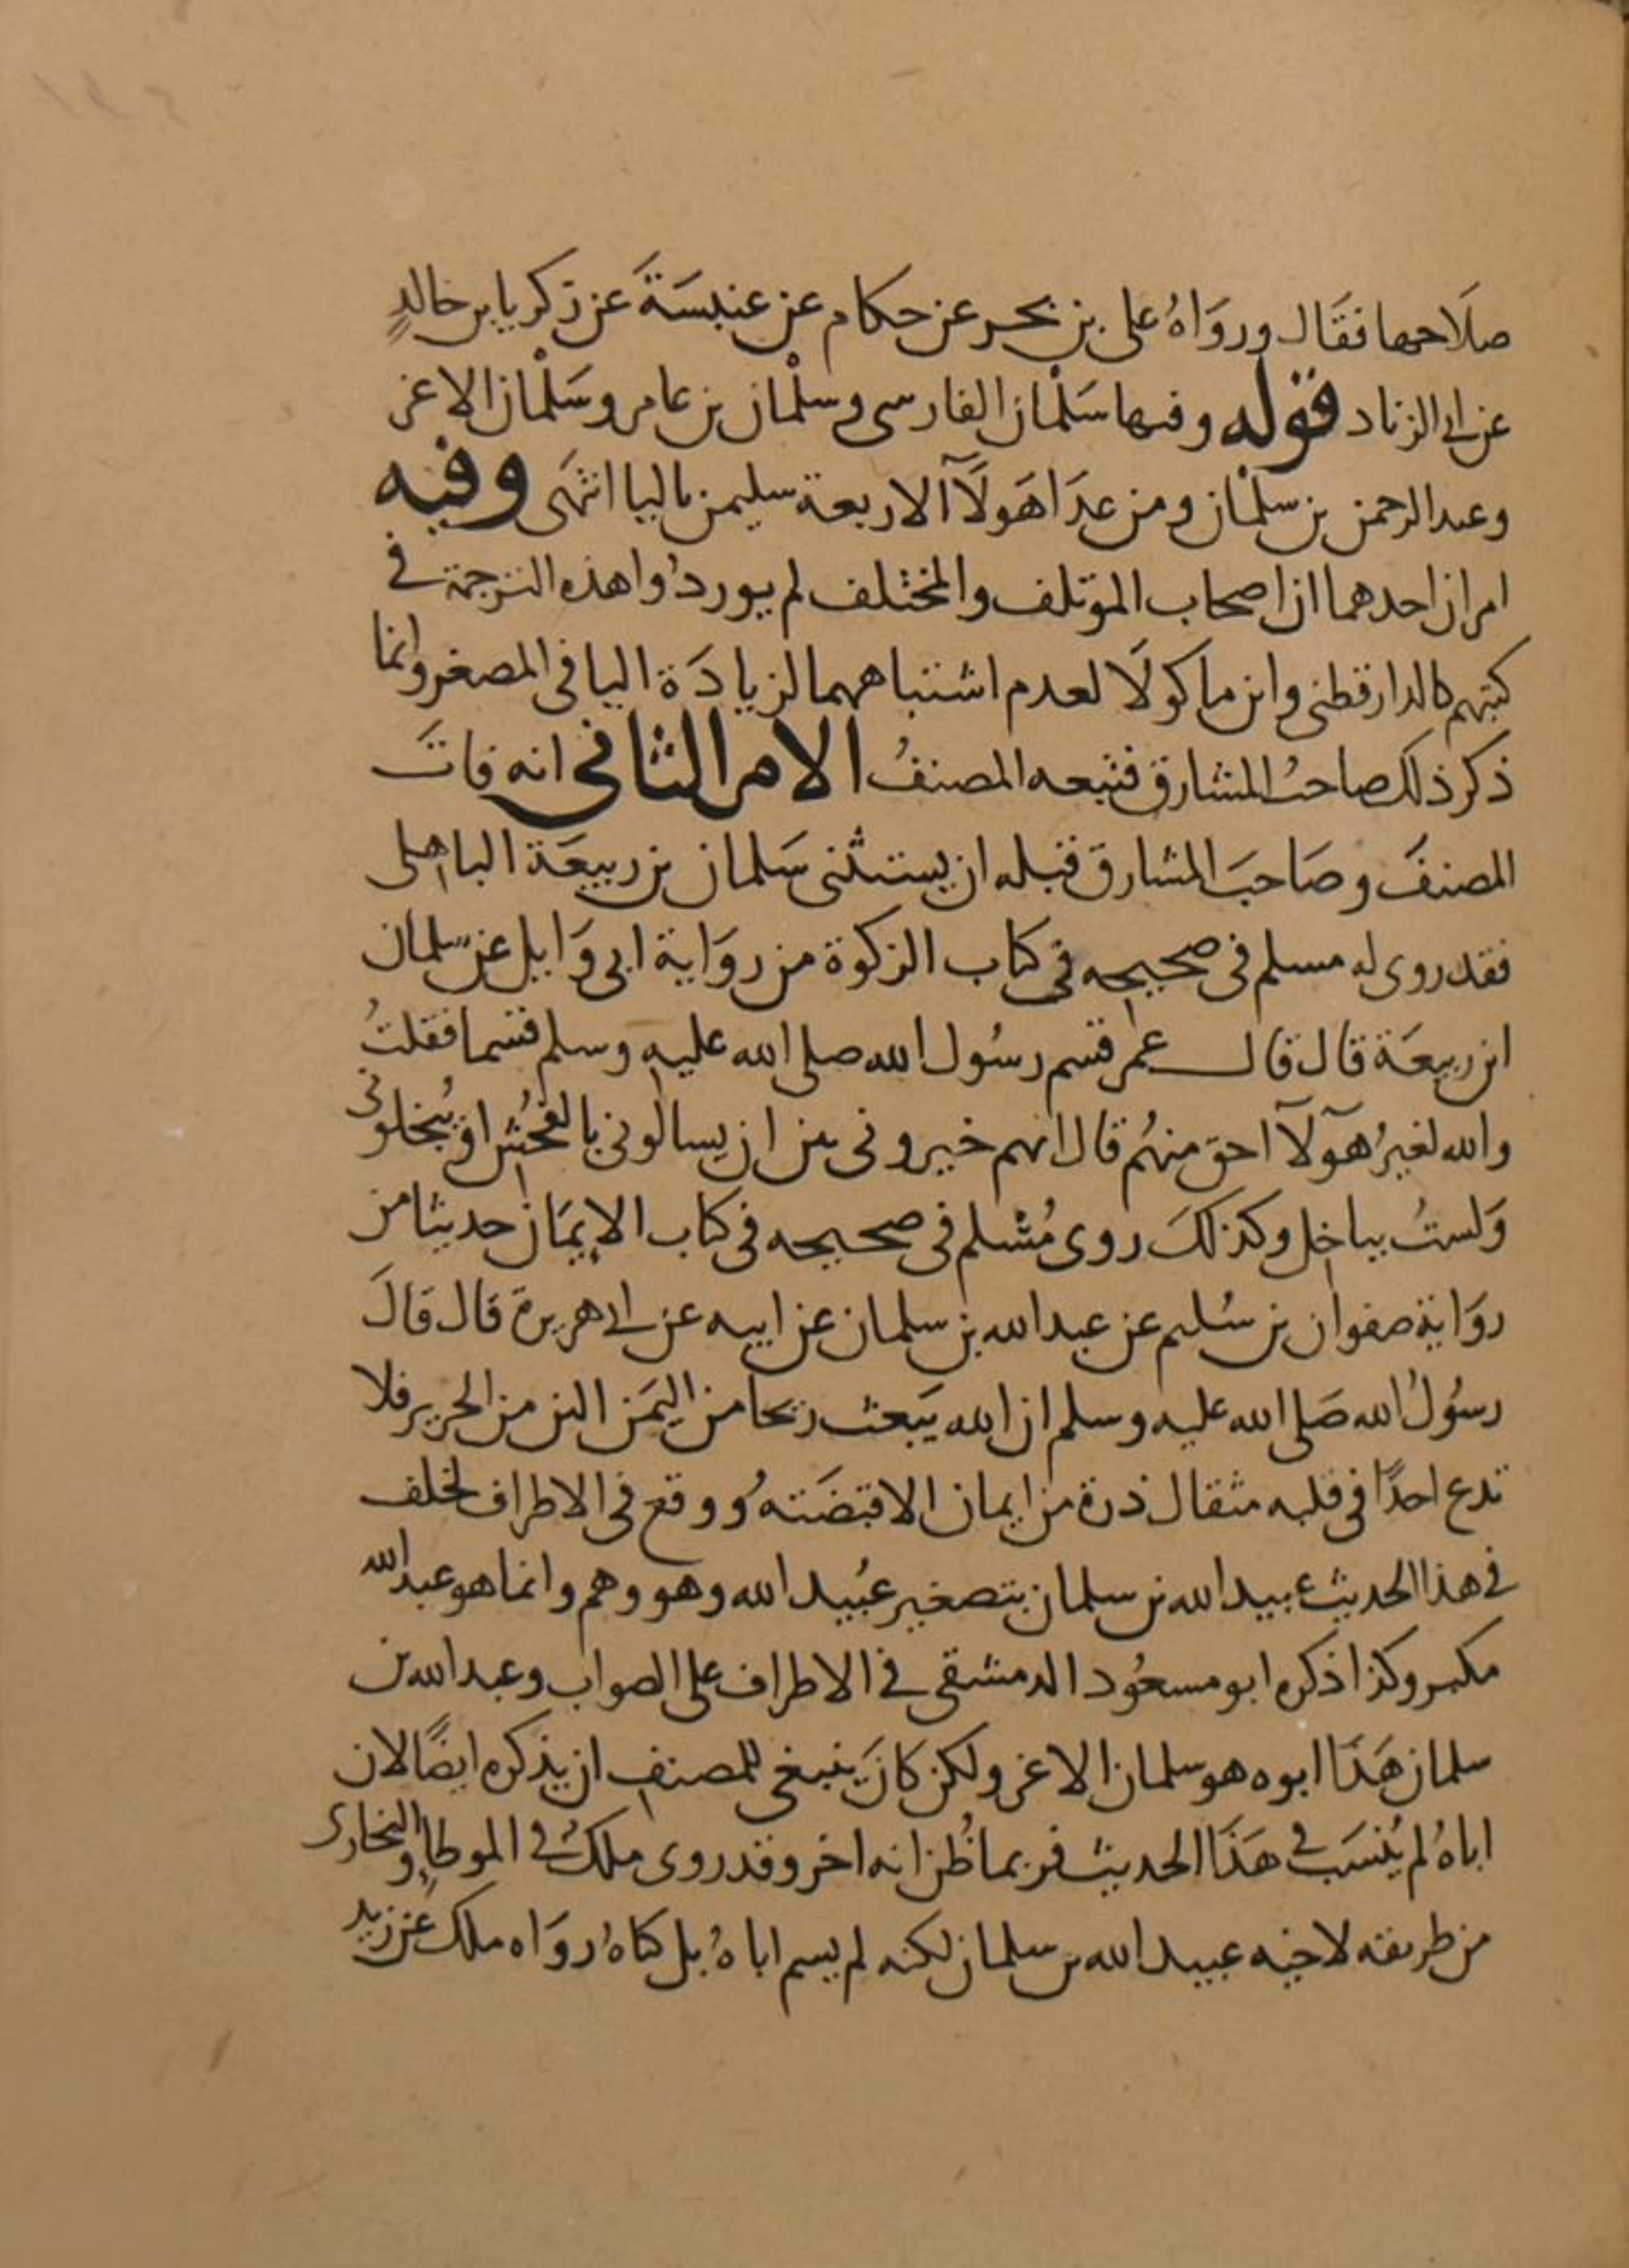 صلَاحها فقَال وروَاهُ على بن بحر عن حكام عن عنبسَةَ عن زكريا بن خالدٍ
عن ابى الزناد قوله وفيها سَلْمان الفارسى وسلْمان بن عامر وسَلْمان الاغر
وعبد الرحمن بن سلْمان ومن عدَا هَولَآ الاربعة سليمن باليا انتهَى وفيه
امران احدهما ان اصحاب الموتلف والمختلف لم يوردُوا هذه الترجمة فى
كتبهم كالدارقطنى وابن ماكولَا لعدم اشتباههما لزيادَة اليا فى المصغر وانما
ذكر ذلك صاحبُ المشارق فتبعه المصنفُ الامر الثانى انه فاتَ
المصنفَ وصَاحبَ المشارق قبله ان يستثنى سَلمان بن ربيعَة الباهلى
فقد روى له مسلم فى صحيحه فى كتاب الزكوة من روَاية ابى وَايل عن سلمان
ابن ربيعَة قال قال عمر قسم رسُول الله صلى الله عليه وسلم قسما فقلتُ
والله لغيرُ هَوَلآ احق منهُم قال انهم خيرونى بين ان يسالونى بالفحُش او يُبخلونى
وَلستُ بباخل وكذلكَ روى مُسلم فى صحيحه فى كتاب الإيمَان حديثا من
روَاية صفوان بن سُليم عن عبد الله بن سلمان عن ابيه عن ابى هريرة قال قالَ
رسُولُ الله صَلى الله عليه وسلم ان الله يَبعث ريحا من اليمَن الين من الحرير فلا
تدع احدًا فى قلبه مثقال ذرة من ايمان الا قبضَتهُ ووقع فى الاطراف لخلف
فى هذا الحديث عبيد الله بن سلمان بتصغير عُبيد الله وهو وهم وانما هو عبد الله
مكبر وكذا ذكره ابو مسعُود الدمشقى فى الاطراف على الصواب وعبد الله بن
سلمان هَذَا ابوه هو سلمان الاغر ولكن كانَ ينبغى للمصنف ان يذكره ايضًا لان
اباهُ لم يُنسَب فى هَذَا الحديث فربما ظُن انه اخر وقد روى ملكُ فى الموطإ والبخارى
من طريقه لاخيه عبيد الله بن سلمان لكنه لم يسم اباهُ بل كناهُ روَاه ملك عن زيد